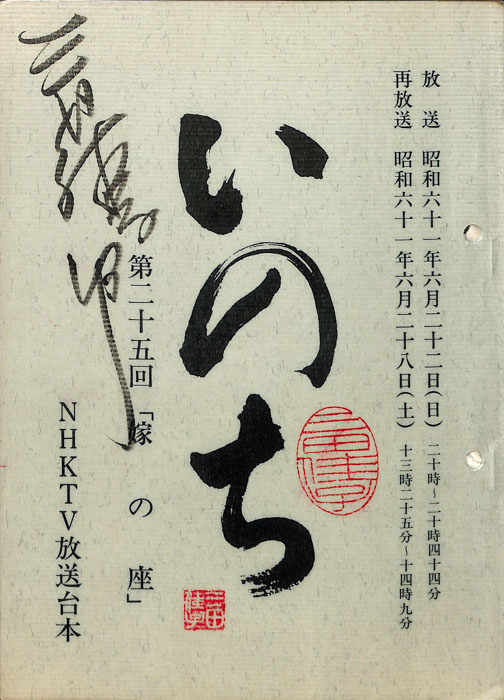 放送 昭和六十一年六月二十二日(日) 二十時~二十時四十四分
再放送 昭和六十一年六月二十八日(土) 十三時二十五分~十四時九分
いのち
第二十五回「嫁の座」
NHKTV放送台本